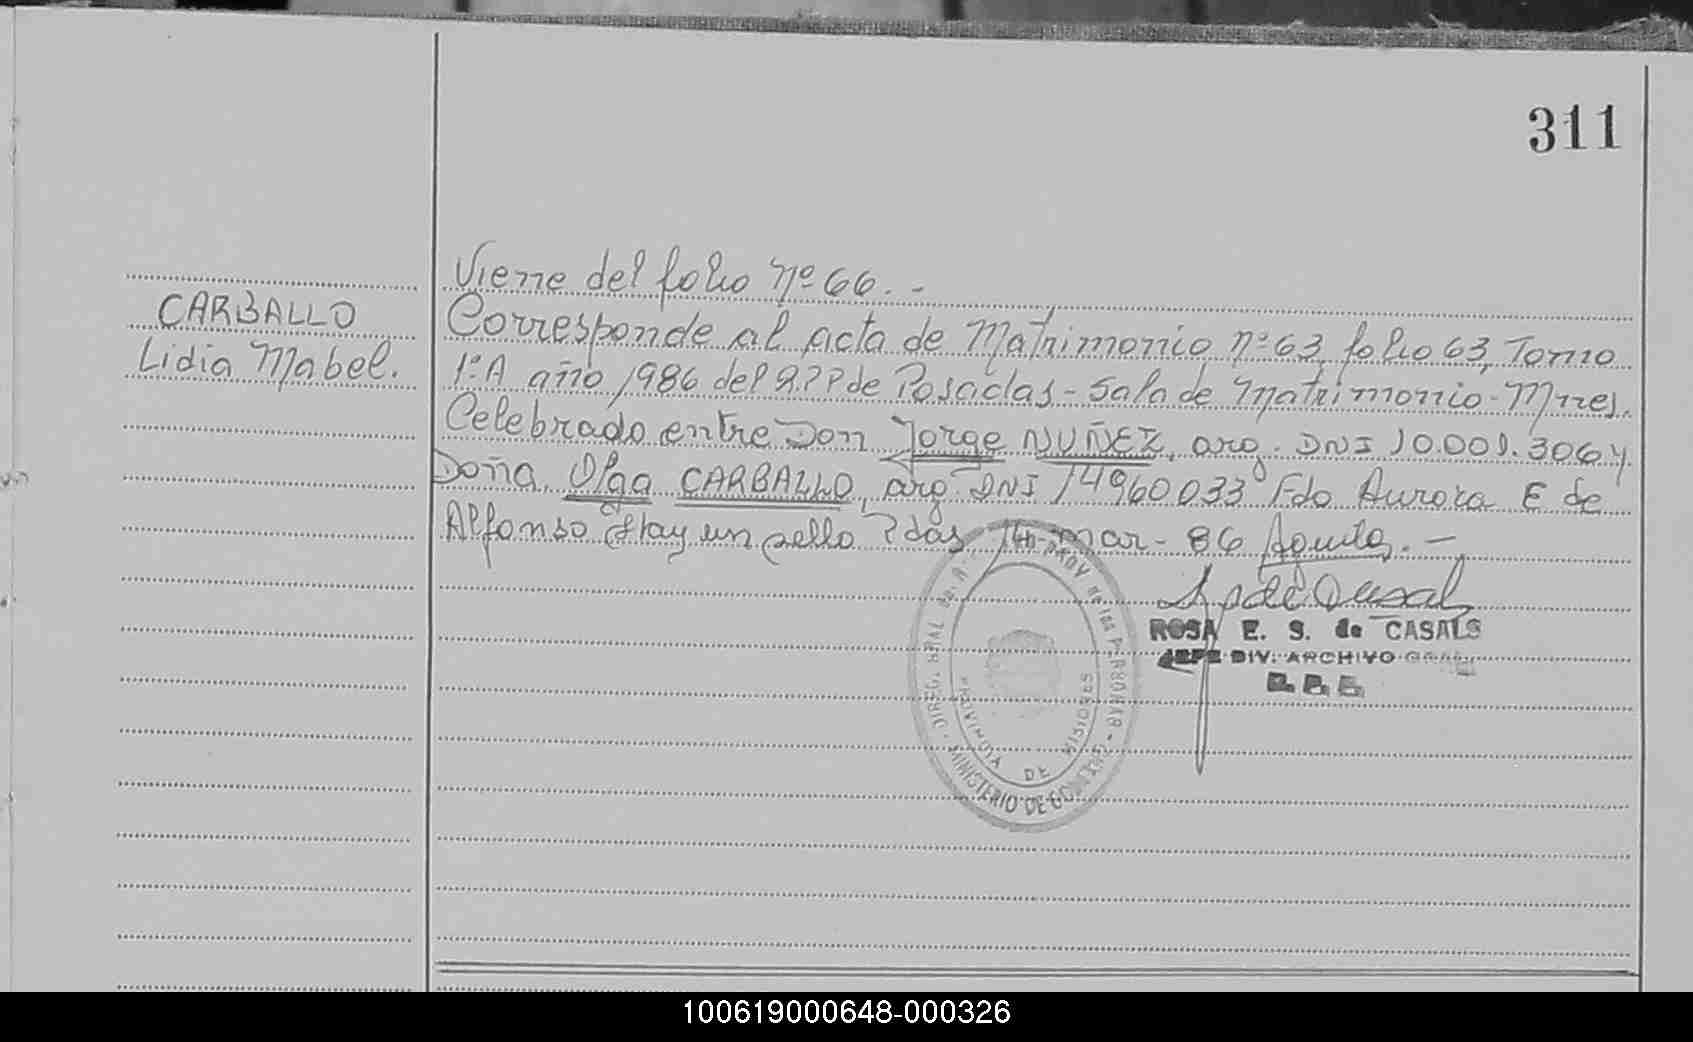 311
Viene del folio Nº 66. -
CARBALLO
Lidia Mabel.
Corresponde al acta de Matrimonio nº 63, folio 63, Tomo
1º A año 1986 del R.P.P de Posadas - Sala de Matrimonio - Mnes.
Celebrado entre Don Jorge NUÑEZ, arg. DNI 10.001.306 y
Doña Olga CARBALLO, arg. DNI 14960033 Fdo Aurora E de
Alfonso Hay un sello Pdas, 14-mar-86 Aguila. -
ROSA E. S. de CASALS
JEFE DIV. ARCHIVO GRAL.
DIREC. GRAL de las PERSONAS
PROVINCIA DE MISIONES
MINISTERIO DE GOBIERNO
100619000648-000326